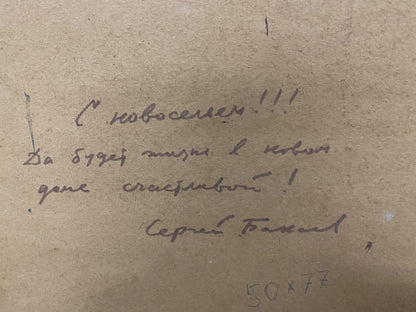 С новосельем!!!
Да будет жизнь в новом
доме счастливой!
Сергей Бакаев
50x77